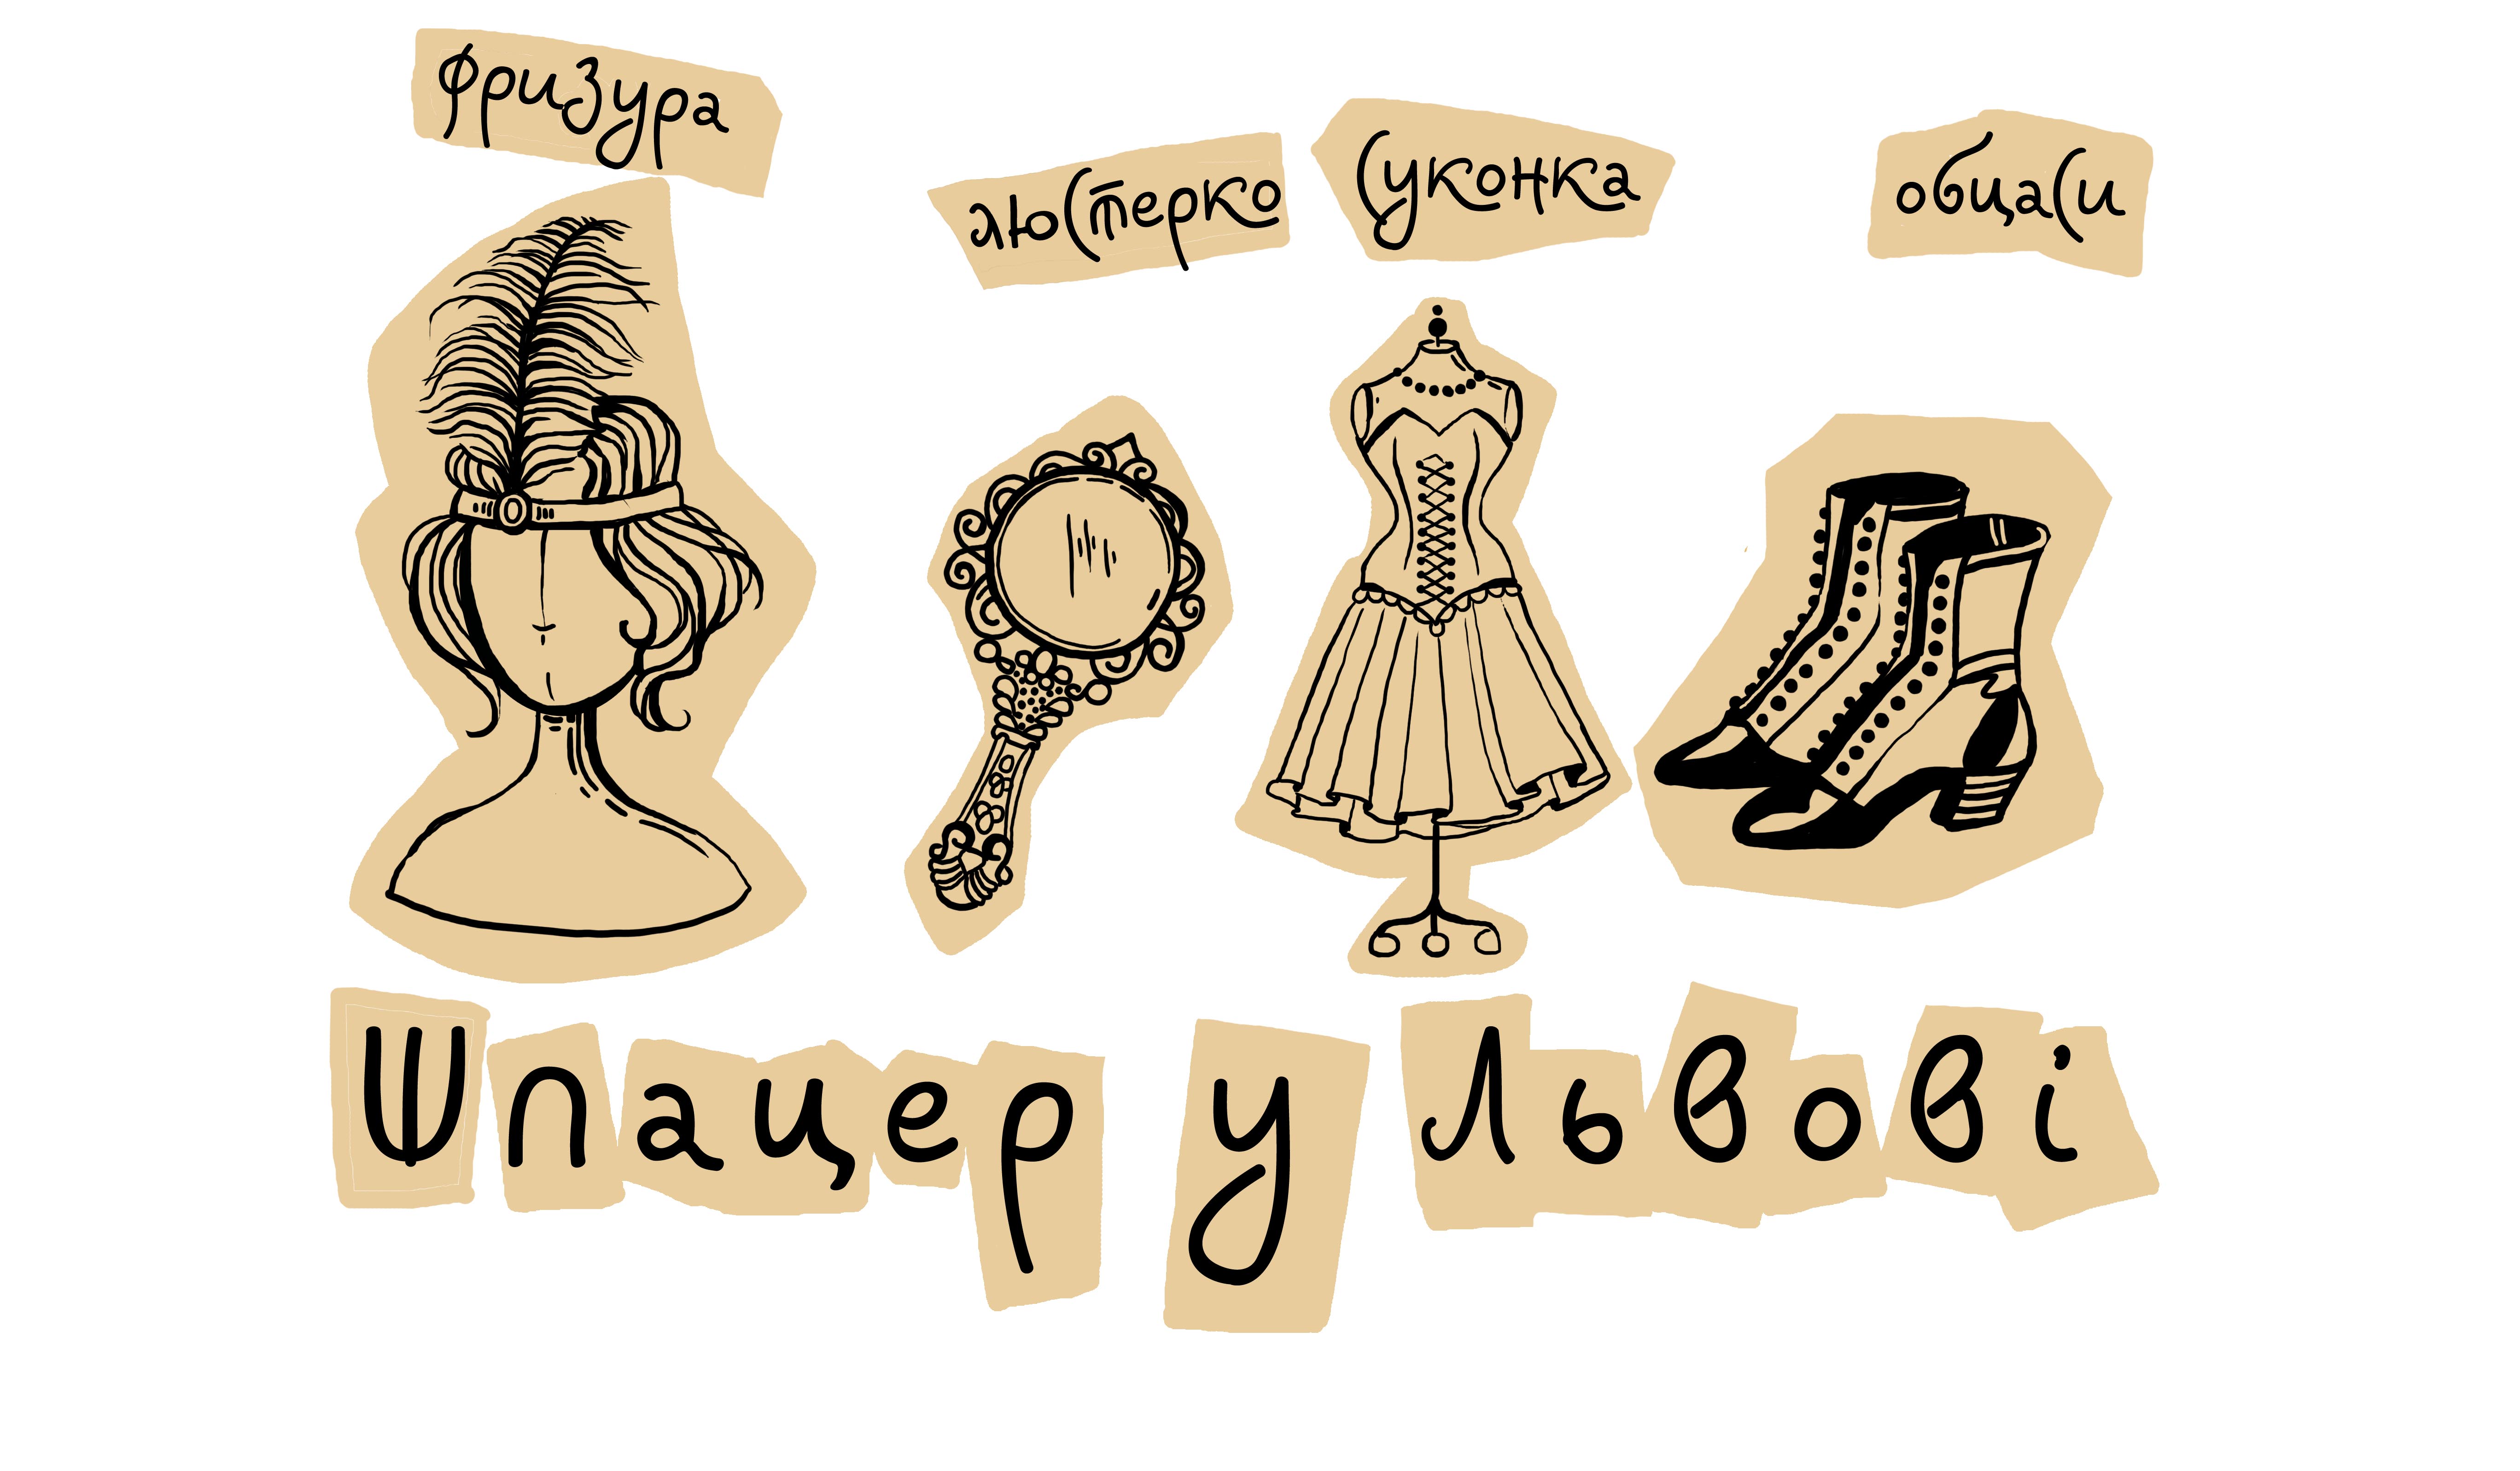 фризура
люстерко
суконка
обцаси
Шпацер у Львові